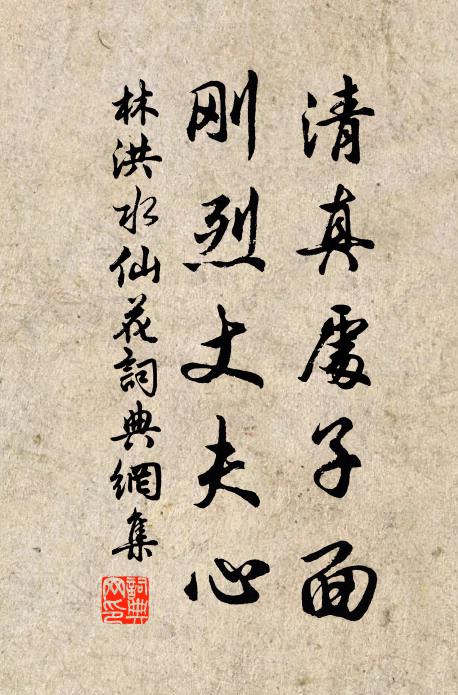 清真處子面
刚烈丈夫心
林洪水仙花詞典網集
詞典
网印